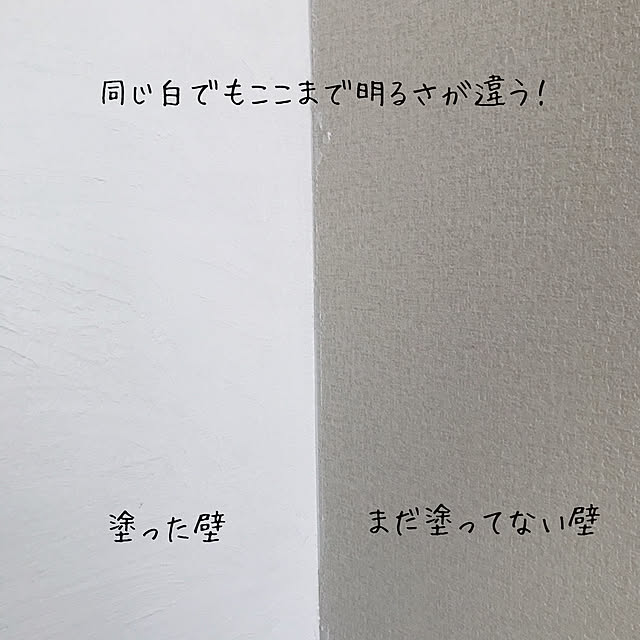 同じ白でもここまで明るさが違う!
塗った壁
まだ塗ってない壁